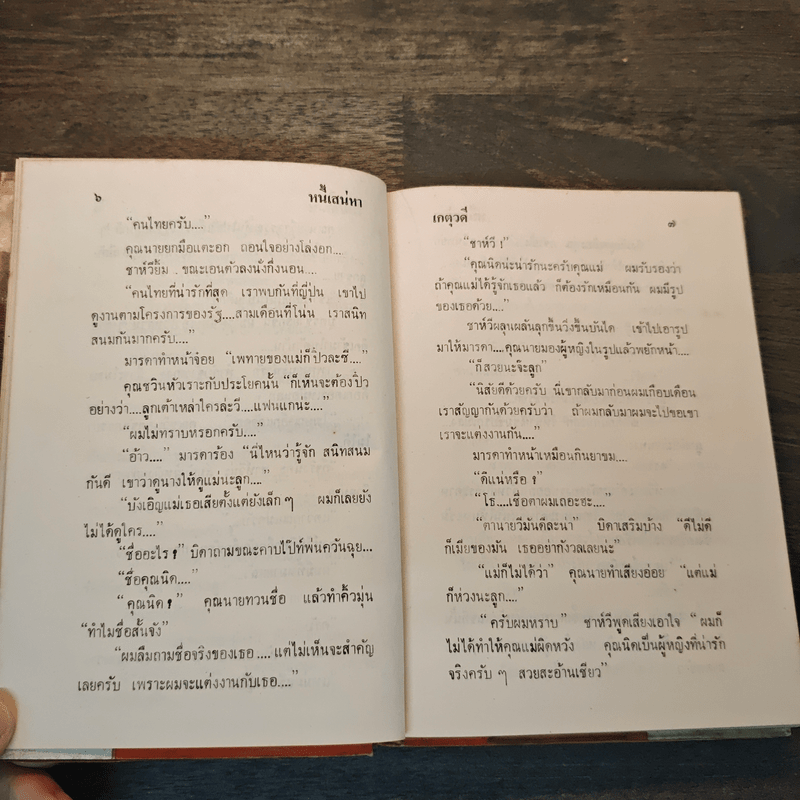 ๖ หนี้เสน่หา
“คนไทยครับ....”
คุณนายยกมือแตะอก ถอนใจอย่างโล่งอก....
ชาห์วียิ้ม . ขณะเอนตัวลงนั่งกึ่งนอน....
“คนไทยที่น่ารักที่สุด เราพบกันที่ญี่ปุ่น เขาไป
ดูงานตามโครงการของรัฐ....สามเดือนที่โน่น เราสนิท
สนมกันมากครับ....”
มารดาทำหน้าจ๋อย “เพทายของแม่ก็ปิ๋วละซี....”
คุณชวินหัวเราะกับประโยคนั้น “ก็เห็นจะต้องปิ๋ว
อย่างว่า....ลูกเต้าเหล่าใครล่ะวี....แฟนแกน่ะ....”
“ผมไม่ทราบหรอกครับ....”
“อ้าว....” มารดาร้อง “นี่ไหนว่ารู้จัก สนิทสนม
กันดี เขาว่าดูนางให้ดูแม่นะลูก....”
“บังเอิญแม่เธอเสียตั้งแต่ยังเล็กๆ ผมก็เลยยัง
ไม่ได้ดูใคร....”
“ชื่ออะไร?” บิดาถามขณะคาบไป๊ท์พ่นควันฉุย...
“ชื่อคุณนิด....”
“คุณนิด?” คุณนายทวนชื่อ แล้วทำคิ้วมุ่น
“ทำไมชื่อสั้นจัง”
“ผมลืมถามชื่อจริงของเธอ....แต่ไม่เห็นจะสำคัญ
เลยครับ เพราะผมจะแต่งงานกับเธอ....”
เกตุวดี ๗
“ชาห์วี !”
“คุณนิดน่ะน่ารักนะครับคุณแม่ ผมรับรองว่า
ถ้าคุณแม่ได้รู้จักเธอแล้ว ก็ต้องรักเหมือนกัน ผมมีรูป
ของเธอด้วย....”
ชาห์วีผลุนผลันลุกขึ้นวิ่งขึ้นบันได เข้าไปเอารูป
มาให้มารดา....คุณนายมองผู้หญิงในรูปแล้วพยักหน้า....
“ก็สวยนะจ๊ะลูก”
“นิสัยดีด้วยครับ นี่เขากลับมาก่อนผมเกือบเดือน
เราสัญญากันด้วยครับว่า ถ้าผมกลับมาผมจะไปขอเขา
เราจะแต่งงานกัน....”
มารดาทำหน้าเหมือนกินยาขม....
“ดีแน่หรือ ?”
“โธ่....เชื่อตาผมเถอะฮะ....”
“ตานายวีมันดีละน่า” บิดาเสริมบ้าง “ดีไม่ดี
ก็เมียของมัน เธออย่ากังวลเลยน่ะ”
“แม่ก็ไม่ได้ว่า” คุณนายทำเสียงอ่อย “แต่แม่
ก็ห่วงนะลูก....”
“ครับผมทราบ” ชาห์วีพูดเสียงเอาใจ “ผมก็
ไม่ได้ทำให้คุณแม่ผิดหวัง คุณนิดเป็นผู้หญิงที่น่ารัก
จริงครับ ๆ สวยสะอ้านเชียว”